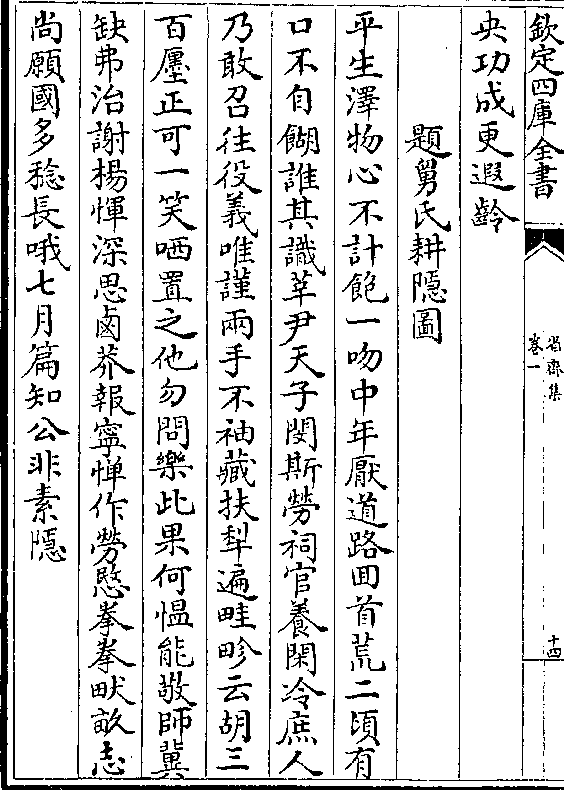 欽定四庫全書
省齋集
卷一
十四
央功成更遐齡
題舅氏耕隱圖
平生澤物心不計飽一吻中年厭道路囬首荒二頃有
口不自餬誰其識莘尹天子閔斯勞祠官養閑冷庶人
乃敢召往役義唯謹兩手不袖藏扶犁遍畦畛云胡三
百廛正可一笑哂置之他勿問樂此果何愠能敬師冀
缺弗治謝楊惲深思鹵莽報寧憚作勞慜拳拳畎畝志
尚願國多稔長哦七月篇知公非素隱